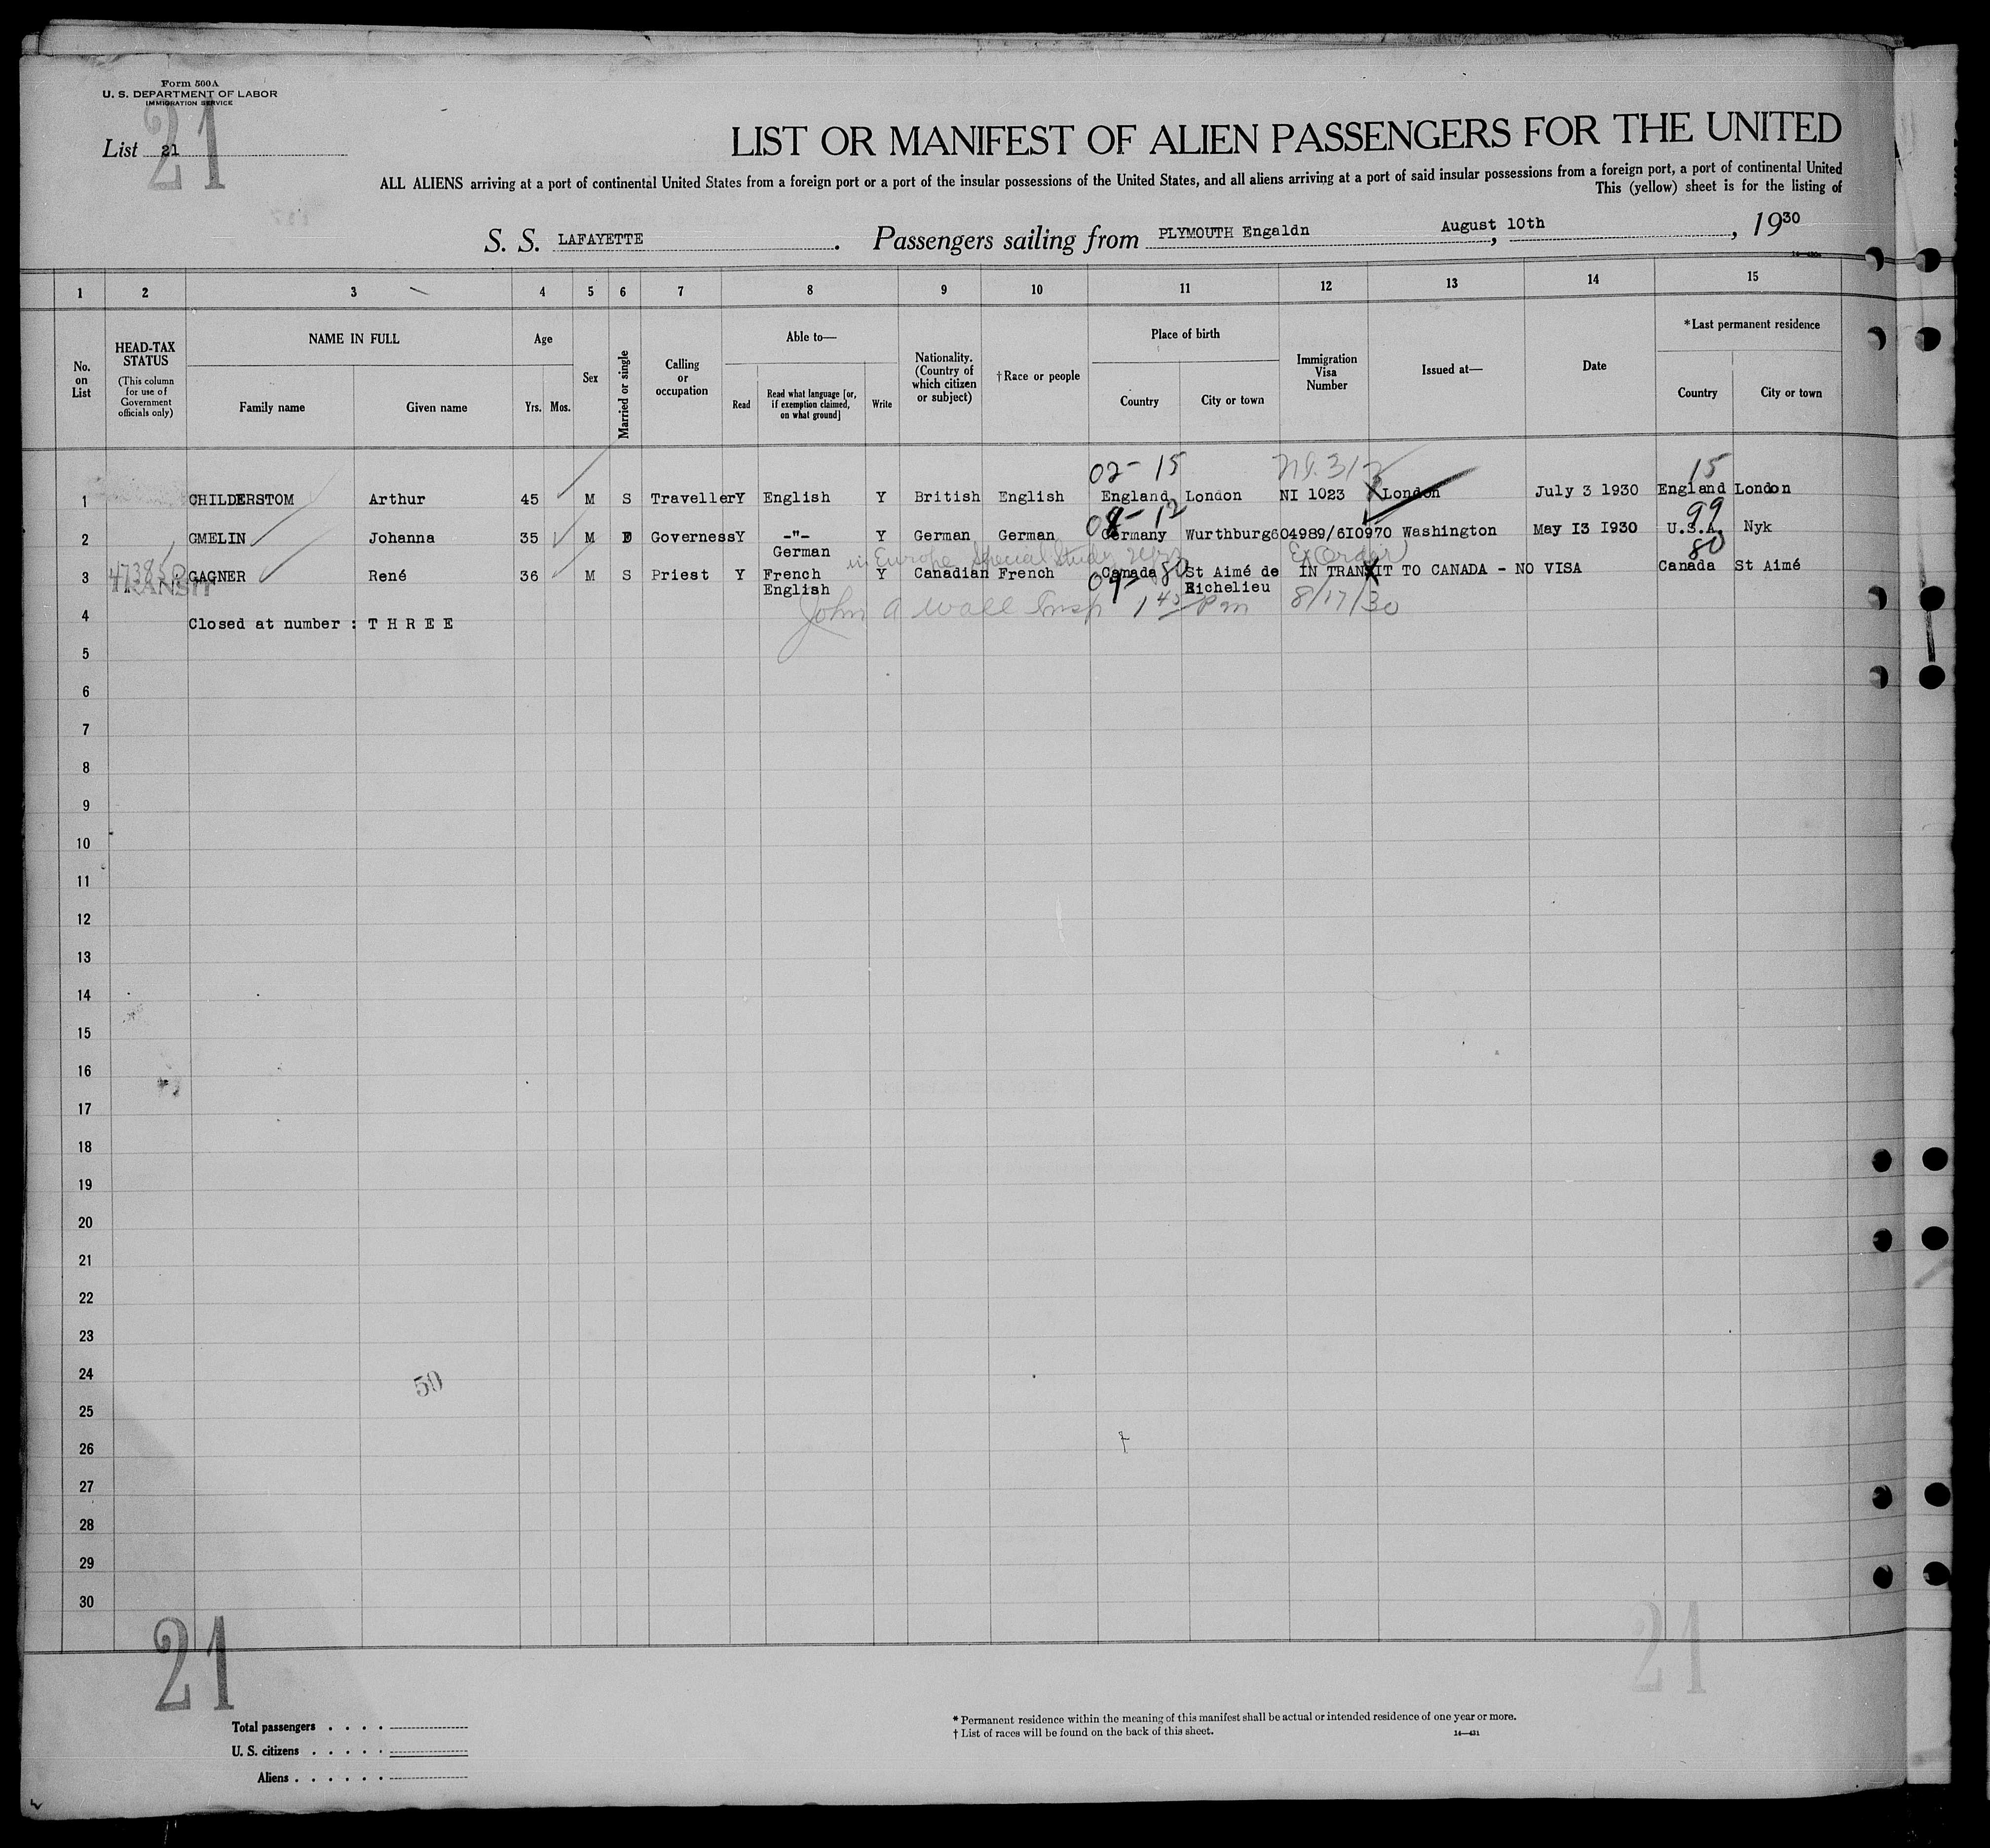 Form 500A
U. S. DEPARTMENT OF LABOR
IMMIGRATION SERVICE
21
List 21
LIST OR MANIFEST OF ALIEN PASSENGERS FOR THE UNITED
ALL ALIENS arriving at a port of continental United States from a foreign port or a port of the insular possessions of the United States, and all aliens arriving at a port of said insular possessions from a foreign port, a port of continental United
This (yellow) sheet is for the listing of
S. S. LAFAYETTE . Passengers sailing from PLYMOUTH Engaldn , August 10th , 1930
1 2 3 4 5 6 7 8 9 10 11 12 13 14 15
No. on List
HEAD-TAX STATUS
(This column for use of Government officials only)
NAME IN FULL
Family name Given name
Age
Yrs. Mos.
Sex
Married or single
Calling or occupation
Able to—
Read
Read what language [or, if exemption claimed, on what ground]
Write
Nationality. (Country of which citizen or subject)
†Race or people
Place of birth
Country City or town
Immigration Visa Number
Issued at—
Date
*Last permanent residence
Country City or town
02-15 15
1 CHILDERSTOM Arthur 45 M S Traveller Y English Y British English England London NI 1023 London July 3 1930 England London
12 99
2 GMELIN Johanna 35 M Governess Y -"- Y German German Germany Wurthburg 604989/6I0970 Washington May I3 I930 U.S.A. Nyk
German
in Europe Special Study 80
3 TRANSIT GAGNER René 36 M S Priest Y French Y Canadian French Canada St Aimé de IN TRANSIT TO CANADA - NO VISA Canada St Aimé
English Richelieu
John A Wall Insp 1 45 Pm 8/17/30
4 Closed at number : T H R E E
5
6
7
8
9
10
11
12
13
14
15
16
17
18
19
20
21
22
23
24
50
25
26
27
28
29
30
21 21
Total passengers . . . .
U. S. citizens . . . . .
Aliens . . . . . .
* Permanent residence within the meaning of this manifest shall be actual or intended residence of one year or more.
† List of races will be found on the back of this sheet.
14—431